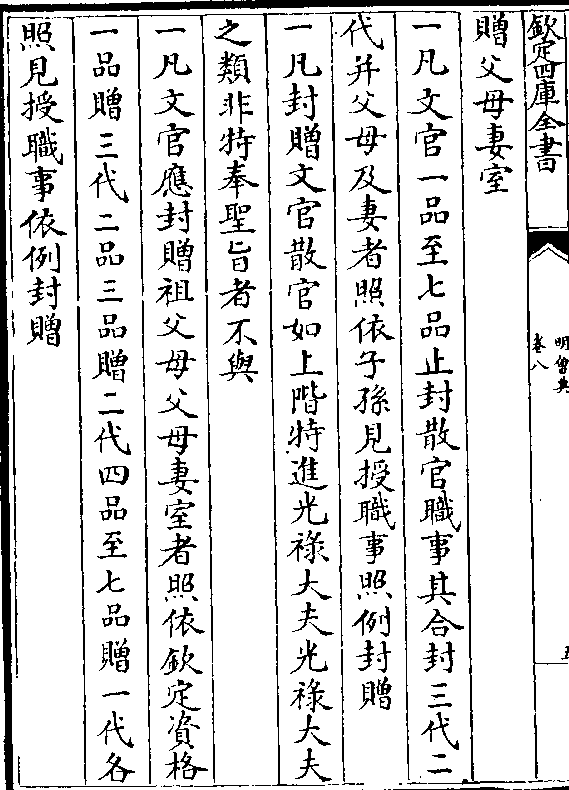 欽定四庫全書
明會典
卷八
五
贈父母妻室
一凡文官一品至七品止封散官職事其合封三代二
代并父母及妻者照依子孫見授職事照例封贈
一凡封贈文官散官如上階特進光祿大夫光祿大夫
之類非特奉聖旨者不與
一凡文官應封贈祖父母父母妻室者照依欽定資格
一品贈三代二品三品贈二代四品至七品贈一代各
照見授職事依例封贈